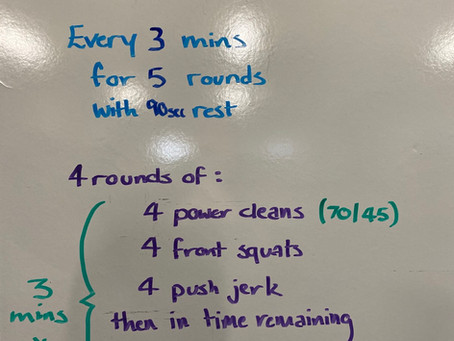 Every 3 mins
for 5 rounds
with 90sec rest
4 rounds of :
4 power cleans (70/45)
4 front squats
4 push jerk
3
mins
then in time remaining